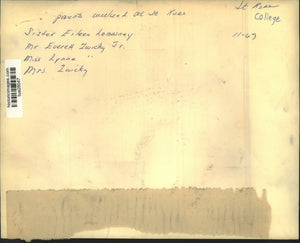 parents weekend at St Rose
St Rose
College
11-67
Sister Eileen
Mr Everett Zwicky Jr.
Miss Lynne "
Mrs. Zwicky